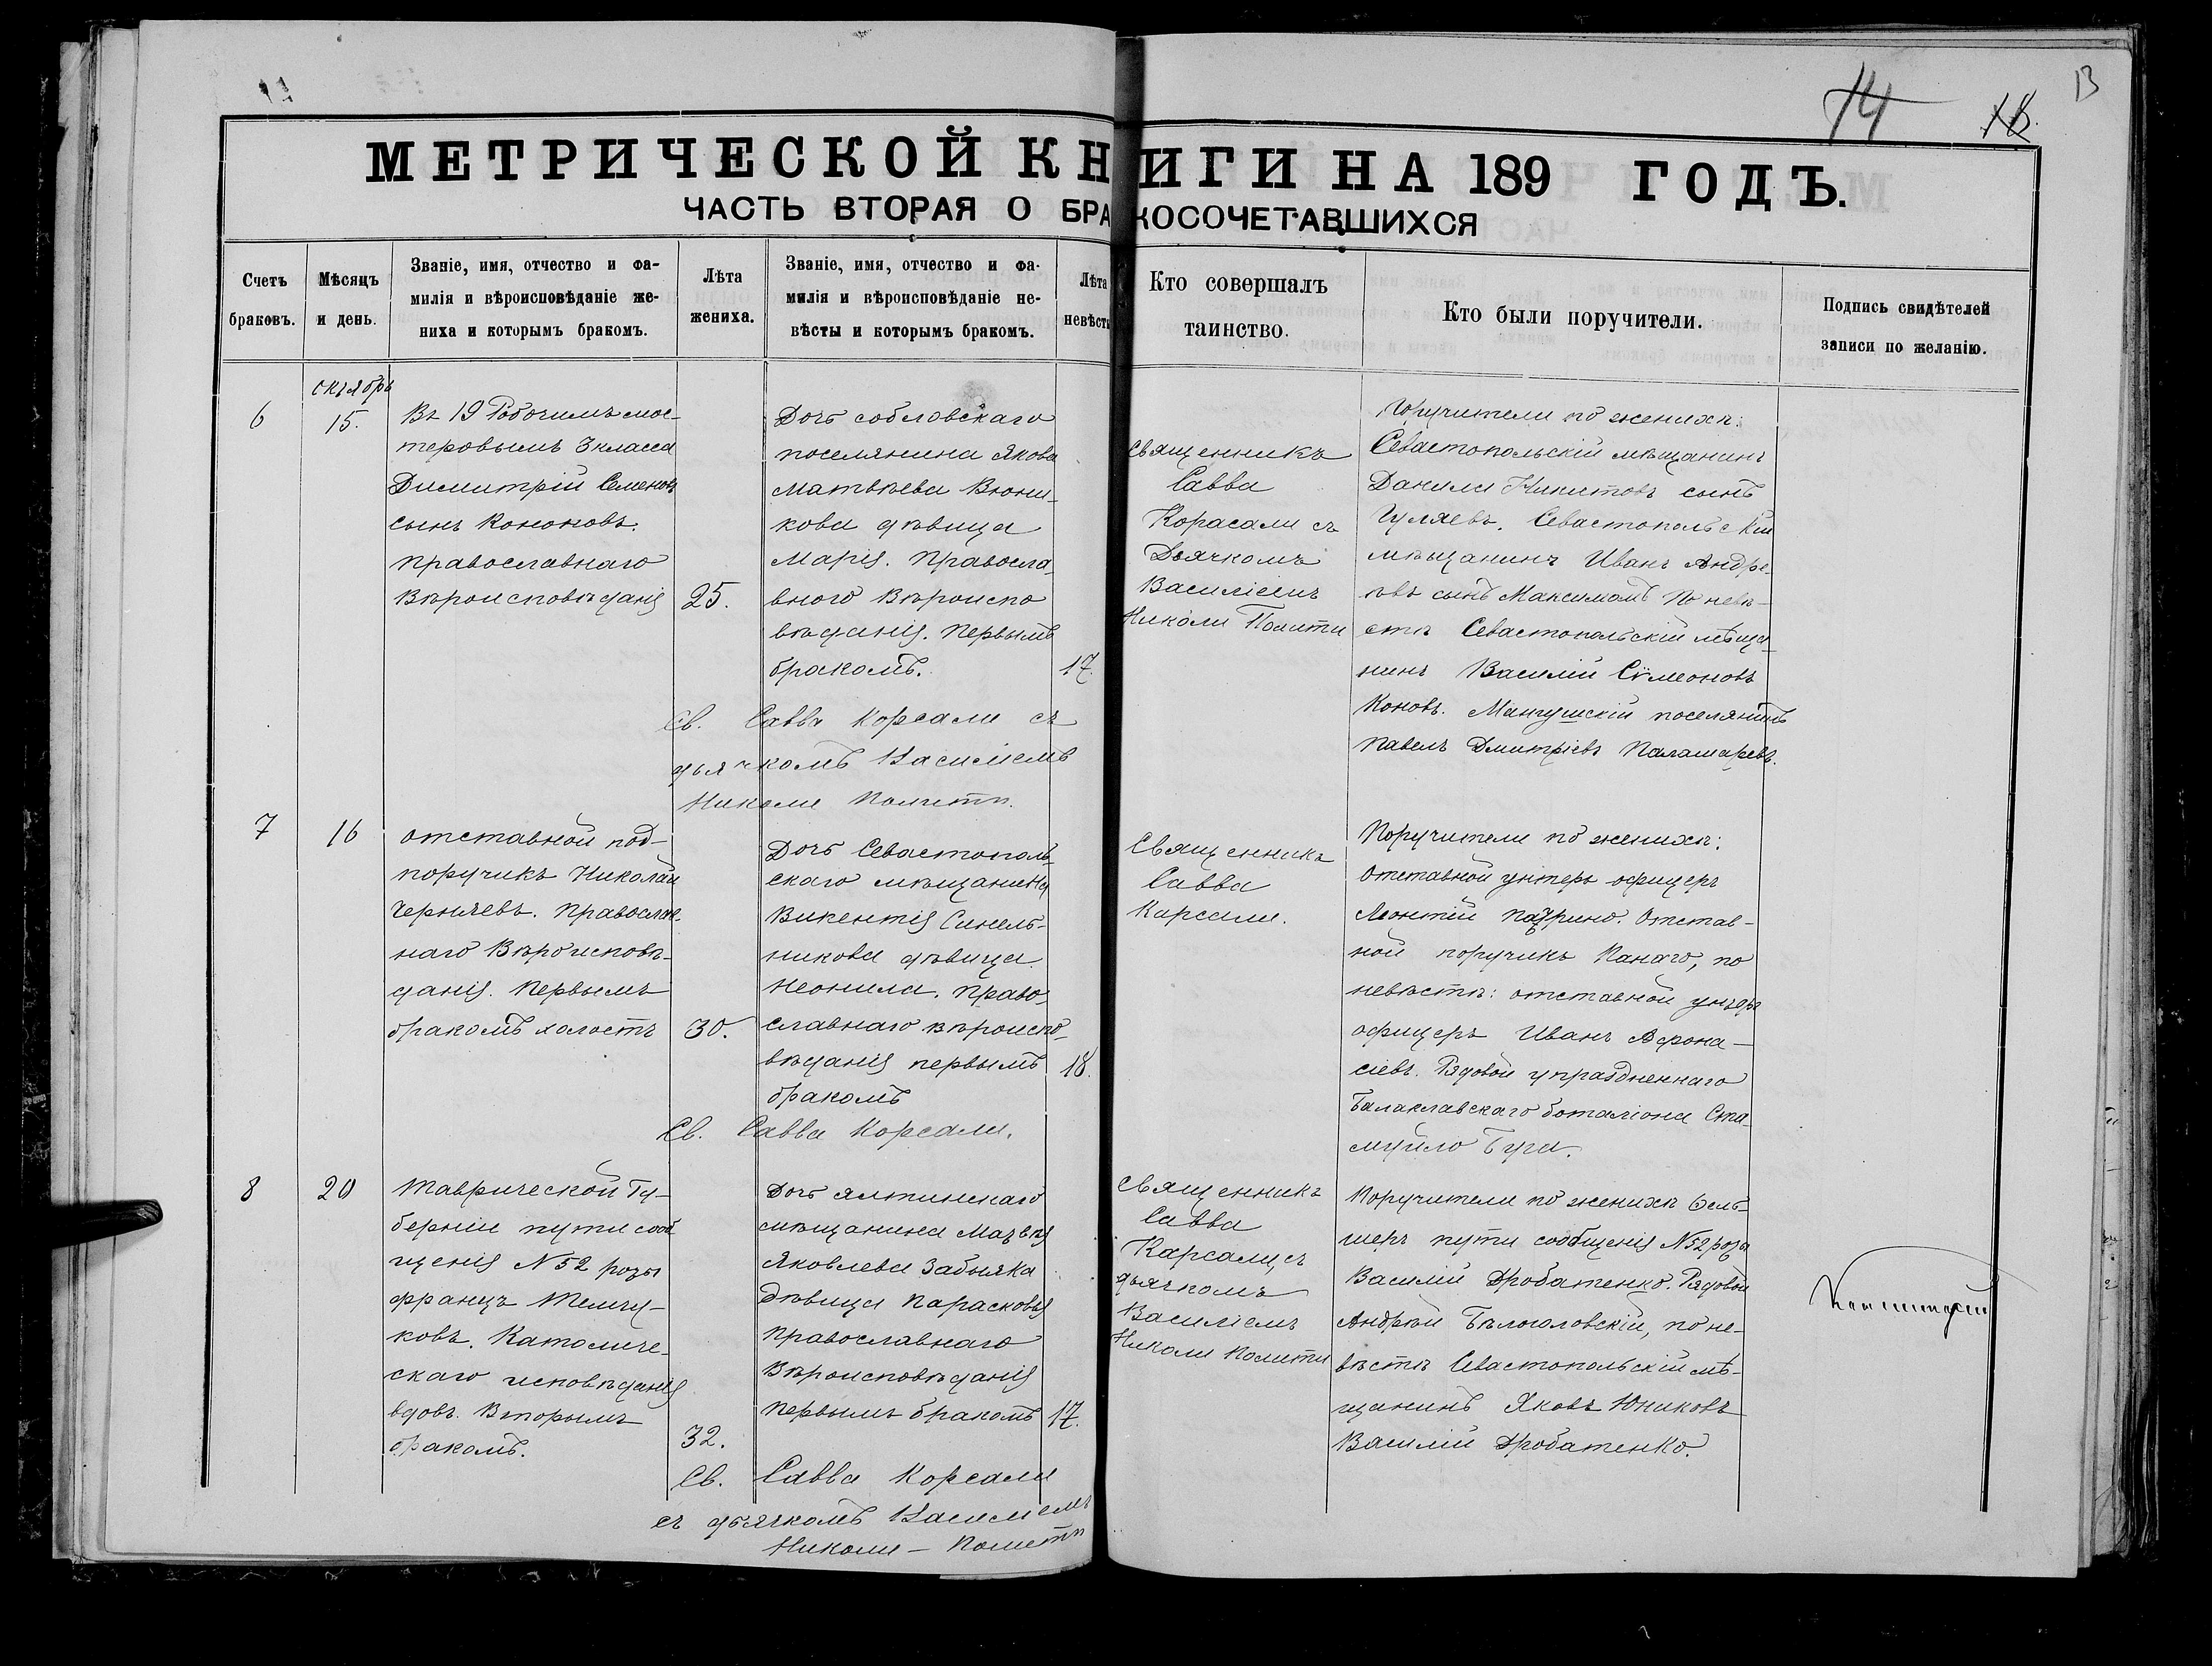 14
13
МЕТРИЧЕСКОЙ КНИГИ НА 189 ГОДЪ.
ЧАСТЬ ВТОРАЯ О БРАКОСОЧЕТАВШИХСЯ
Счетъ
браковъ.
Мѣсяцъ
и день.
Званіе, имя, отчество и фа-
милія и вѣроисповѣданіе же-
ниха и которымъ бракомъ.
Лѣта
жениха.
Званіе, имя, отчество и фа-
милія и вѣроисповѣданіе не-
вѣсты и которымъ бракомъ.
Лѣта
невѣсты
Кто совершалъ
таинство.
Кто были поручители.
Подпись свидѣтелей
записи по желанію.
6
октябрь
15.
Въ 19 Рабочимъ мас-
теровымъ 3 класса
Димитрій Семеновъ
сынъ Кононовъ.
православнаго
Вѣроисповѣданія
25.
Дочь собловскаго
поселянина Якова
Матвѣева Вюни-
кова дѣвица
Марія. Правосла-
вного Вѣроиспо
вѣданія. Первымъ
бракомъ.
17.
Священникъ
Савва
Корасали съ
Дьячкомъ
Василіемъ
Николи Полити
Поручители по женихѣ:
Севастопольскій мѣщанинъ
Данила Никитовъ сынъ
Гуляевъ. Севастопольскій
мѣщанинъ Иванъ Андре-
евъ сынъ Максимомъ По невѣ-
стѣ Севастопольскій мѣща-
нинъ Василій Сѵмеоновъ
Коновъ. Мангушскій поселянинъ
Павелъ Дмитріевъ Паламаревъ.
Св. Савва Корсали съ
дьячкомъ Василіемъ
Николи Полити.
7
16
отставной под-
поручикъ Николай
Чернаевъ. Православ-
наго Вѣроисповѣ-
данія. Первымъ
бракомъ холостъ
30.
Дочь Севастополь-
скаго мѣщанина
Викентія Синель-
никова дѣвица
Неонила. Право-
славнаго вѣроиспо-
вѣданія первымъ
бракомъ
18.
Священникъ
Савва
Карсали.
Поручители по женихѣ:
Отставной унтеръ офицеръ
Леонтій Отстав-
ной поручикъ Канаго, по
невѣстѣ: отставной унтеръ
офицеръ Иванъ Афона-
сіевъ. Рядовой упраздненнаго
Балаклавскаго баталіона Ста-
муйло
Св. Савва Корсали.
8
20
Таврической Гу-
берніи пути сооб
щенія N 52 розы
францъ
ковъ. Католиче-
скаго исповѣданія
вдовъ. Вторымъ
бракомъ.
32.
Дочь ялтинскаго
мѣщанина Матвѣя
Яковлева Забыяка
Дѣвица Парасковья
Православнаго
Вѣроисповѣданія
первымъ бракомъ
17.
Священникъ
Савва
Карсали, съ
дьячкомъ
Василіемъ
Николи Полити
Поручители по женихѣ Фель-
шеръ пути сообщенія N 52 розы
Василій Дробатенко. Рядовой
Андрѣй Бѣлоголовскій, по не-
вѣстѣ Севастопольскій мѣ-
щанинъ Яковъ Юниковъ
Василій Дробатенко.
Св. Савва Корсали
съ дьячкомъ Василіемъ
Николи - Полити